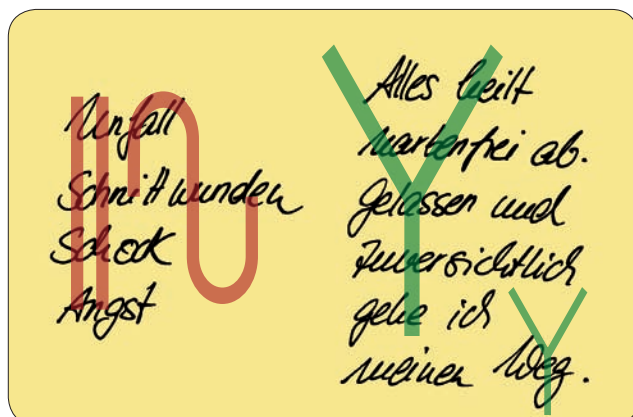 Unfall
Schnittwunden
Schock
Angst
Alles heilt
narbenfrei ab.
Gelassen und
zuversichtlich
gehe ich
meinen Weg.